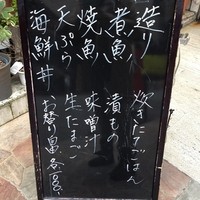 造り
煮魚
焼魚
天ぷら
海鮮丼
炊きたてごはん
漬もの
味噌汁
生たまご
お替り自由